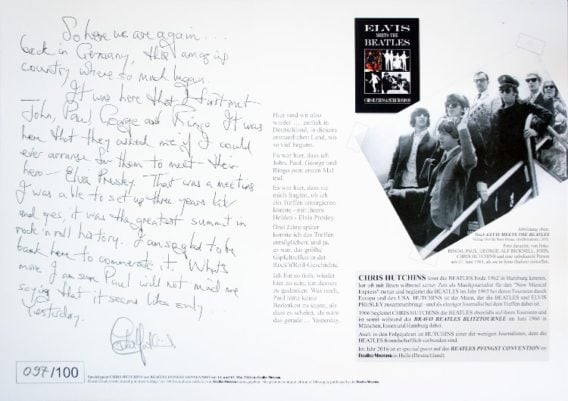 So here we are again ...
back in Germany, this amazing
country where so much began.
It was here that I first met
John, Paul George and Ringo. It was
here that they asked me if I could
ever arrange for them to meet their
hero - Elvis Presley. That was a meeting
I was able to set up three years later
and yes, it was the greatest summit in
rock'n'roll history. I am so glad to be
back here to commemorate it. What's
more I am sure Paul will not mind my
saying that it seems like only
Yesterday.
097/100
Hier sind wir also
wieder ... zurück in
Deutschland, in diesem
erstaunlichen Land, wo
so viel begann.
Es war hier, dass ich
John, Paul, George und
Ringo zum ersten Mal
traf.
Es war hier, dass sie
mich fragten, ob ich
ein Treffen arrangieren
könnte mit ihrem
Helden - Elvis Presley.
Drei Jahre später
konnte ich das Treffen
ermöglichen, und ja,
es war, das größte
Gipfeltreffen in der
Rock'n'Roll-Geschichte.
Ich bin so froh, wieder
hier zu sein, um dessen
zu gedenken. Was noch,
Paul hätte keine
Bedenken zu sagen, als
dass es scheint, als wäre
das gerade ... Yesterday.
ELVIS
MEETS THE
BEATLES
CHRIS HUTCHINS
Abbildung oben:
Buch ELVIS MEETS THE BEATLES
Foto darunter, von links:
RINGO, PAUL, GEORGE, ALF BICKNELL, JOHN,
CHRIS HUTCHINS und eine unbekannte Person
CHRIS HUTCHINS lernt die BEATLES Ende 1962 in Hamburg kennen,
hat oft mit ihnen während seiner Zeit als Musikjournalist für den "New Musical
Express" zu tun und begleitet die BEATLES im Jahr 1965 bei deren Tourneen durch
Europa und den USA. HUTCHINS ist der Mann, der die BEATLES und ELVIS
PRESLEY zusammenbringt - und als einziger Journalist bei dem Treffen dabei ist.
1966 begleitet CHRIS HUTCHINS die BEATLES ebenfalls auf ihren Tourneen und
ist somit während der BRAVO BEATLES BLITZTOURNEE im Juni 1966 in
München, Essen und Hamburg dabei.
Auch in den Folgejahren ist HUTCHINS einer der wenigen Journalisten, dem die
BEATLES freundschaftlich verbunden sind.
Im Jahr 2016 ist er special guest auf der BEATLES PFINGST CONVENTION im
Beatles Museum in Halle (Deutschland).